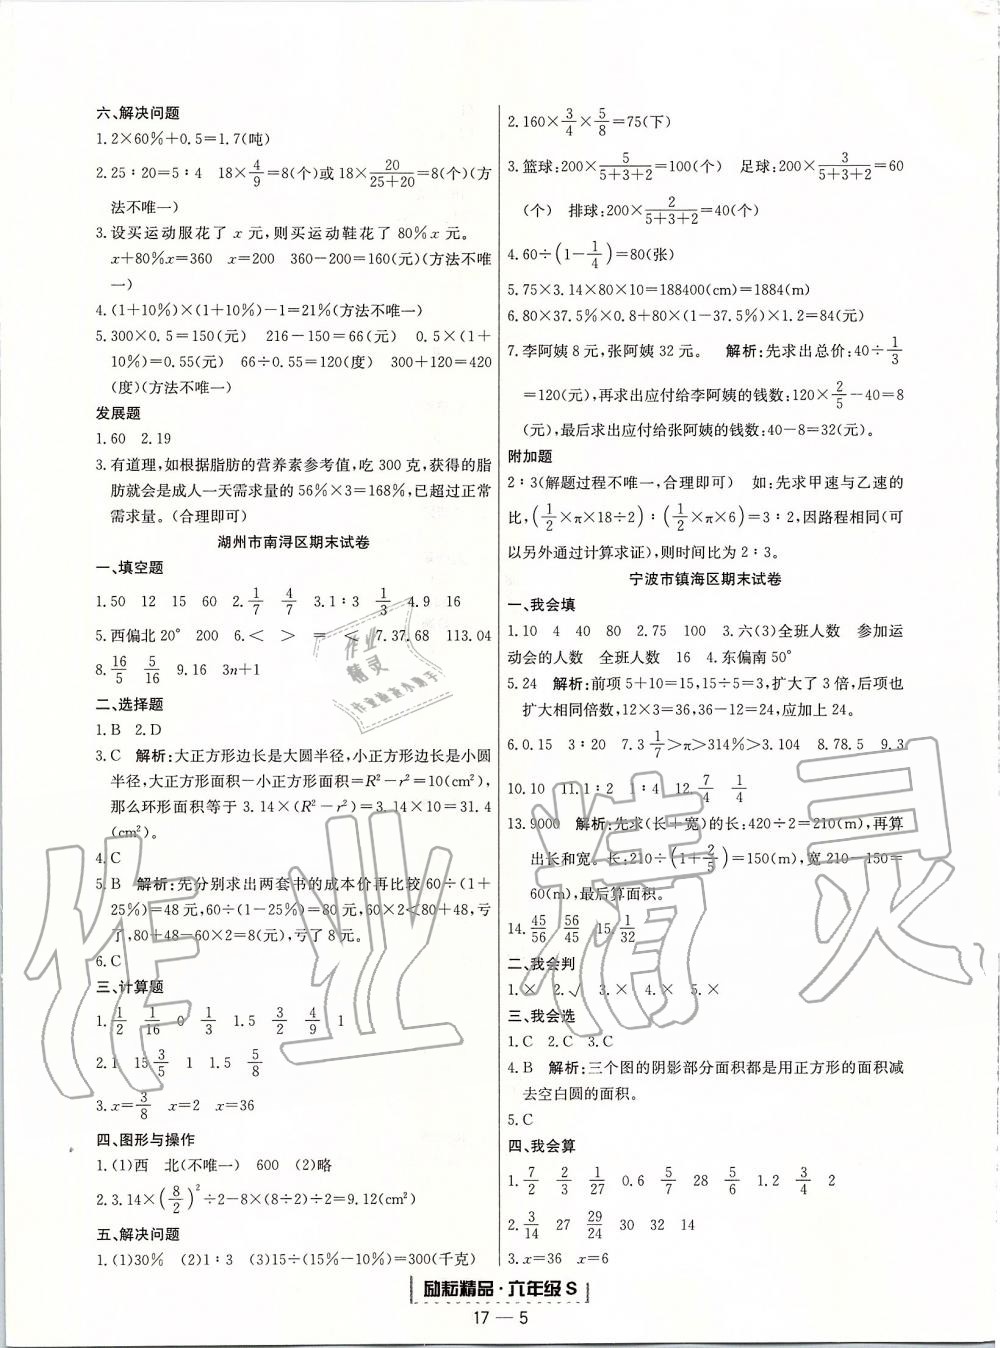 六、解决问题
1.2×60%+0.5=1.7(吨)
2.25∶20=5∶4　18×4/9=8(个)或18×20/(25+20)=8(个)(方
法不唯一)
3.设买运动服花了x元,则买运动鞋花了80%x元。
x+80%x=360　x=200　360-200=160(元)(方法不唯
一)
4.(1+10%)×(1+10%)-1=21%(方法不唯一)
5.300×0.5=150(元)　216-150=66(元)　0.5×(1+
10%)=0.55(元)　66÷0.55=120(度)　300+120=420
(度)(方法不唯一)
发展题
1.60　2.19
3.有道理,如根据脂肪的营养素参考值,吃300克,获得的脂
肪就会是成人一天需求量的56%×3=168%,已超过正常
需求量。(合理即可)
湖州市南浔区期末试卷
一、填空题
1.50　12　15　60　2.1/7　4/7　3.1∶3　1/3　4.9　16
5.西偏北20°　200　6.<　>　=　<　7.37.68　113.04
8.16/5　5/16　9.16　3n+1
二、选择题
1.B　2.D
3.C　解析:大正方形边长是大圆半径,小正方形边长是小圆
半径,大正方形面积-小正方形面积=R²-r²=10(cm²),
那么环形面积等于3.14×(R²-r²)=3.14×10=31.4
(cm²)。
4.C
5.B　解析:先分别求出两套书的成本价再比较60÷(1+
25%)=48元,60÷(1-25%)=80元,60×2<80+48,亏
了,80+48-60×2=8(元),亏了8元。
6.C
三、计算题
1.1/2　1/16　0　1/3　1.5　3/2　4/9　1
2.1　15　3/5　1　1.5　5/8
3.x=3/8　x=2　x=36
四、图形与操作
1.(1)西　北(不唯一)　600　(2)略
2.3.14×(8/2)²÷2-8×(8÷2)÷2=9.12(cm²)
五、解决问题
1.(1)30%　(2)1∶3　(3)15÷(15%-10%)=300(千克)
2.160×3/4×5/8=75(下)
3.篮球:200×5/(5+3+2)=100(个)　足球:200×3/(5+3+2)=60
(个)　排球:200×2/(5+3+2)=40(个)
4.60÷(1-1/4)=80(张)
5.75×3.14×80×10=188400(cm)=1884(m)
6.80×37.5%×0.8+80×(1-37.5%)×1.2=84(元)
7.李阿姨8元,张阿姨32元。　解析:先求出总价:40÷1/3
=120(元),再求出应付给李阿姨的钱数:120×2/5-40=8
(元),最后求出应付给张阿姨的钱数:40-8=32(元)。
附加题
2∶3(解题过程不唯一,合理即可)　如:先求甲速与乙速的
比,(1/2×π×18÷2)∶(1/2×π×6)=3∶2,因路程相同(可
以另外通过计算求证),则时间比为2∶3。
宁波市镇海区期末试卷
一、我会填
1.10　4　40　80　2.75　100　3.六(3)全班人数　参加运
动会的人数　全班人数　16　4.东偏南50°
5.24　解析:前项5+10=15,15÷5=3,扩大了3倍,后项也
扩大相同倍数,12×3=36,36-12=24,应加上24。
6.0.15　3∶20　7.3 1/7>π>314%>3.104　8.78.5　9.3
10.10　11.1∶2　1∶4　12.7/4　1/4
13.9000　解析:先求(长+宽)的长:420÷2=210(m),再算
出长和宽。长:210÷(1+2/5)=150(m),宽210-150=
60(m),最后算面积。
14.45/56　56/45　15.1/32
二、我会判
1.×　2.√　3.×　4.×　5.×
三、我会选
1.C　2.C　3.C
4.B　解析:三个图的阴影部分面积都是用正方形的面积减
去空白圆的面积。
5.C
四、我会算
1.7/2　2/3　1/27　0.6　5/7　28　5/6　1.2　3/4　2
2.3/14　27　29/24　30　32　14
3.x=36　x=36　x=4
励耘精品·六年级 S
17 — 5
作业精灵
作业
精灵
作业检查小助手